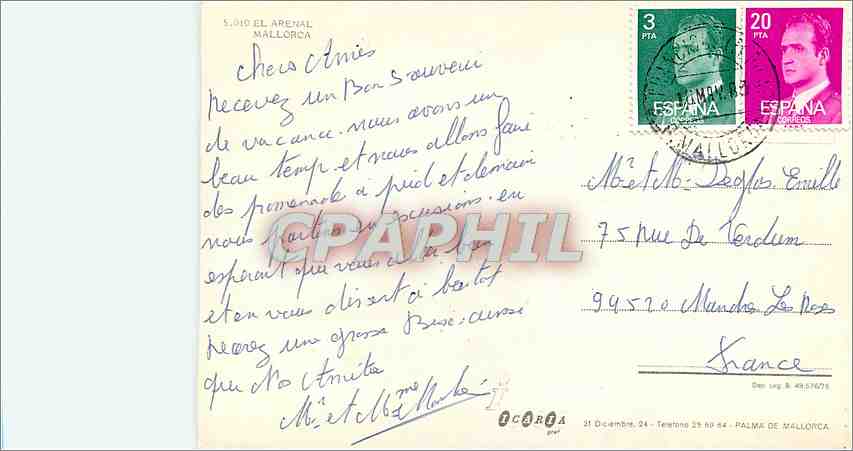 5.010 EL ARENAL
MALLORCA
Chers Amies
recevez un Bon Souveni
de vacance. nous avons un
beau temp et nous allons faire
des promenade a pied et demain
nous partons en excusions. en
esperant que vous alle bien
et en vous disent a bientot
recevez une grosse Bise. ainsi
que Nos Amitie
Mr et Mme
3
PTA
ESPAÑA
CORREOS
20
PTA
ESPAÑA
CORREOS
MALLORCA
Mr et M. Deglos Emille
75 rue De Verdum
94520 Mandres Les Roses
France
Dep. Leg. B. 49.576/75
ICARIA
31 Diciembre, 24 - Telefono 29 69 64 - PALMA DE MALLORCA
CPAPHIL